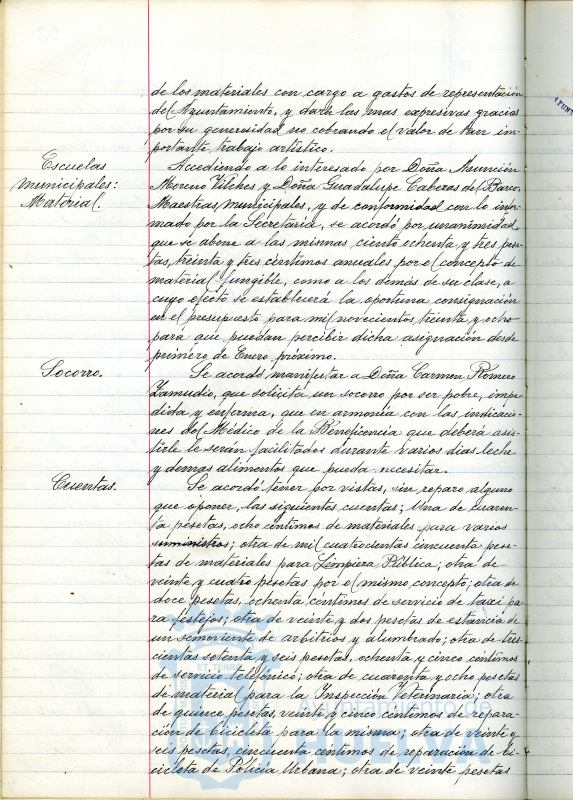 de los materiales con cargo a gastos de representación
del Ayuntamiento, y darle las mas expresivas gracias
por su generosidad no cobrando el valor de tan im-
portante trabajo artístico.
Escuelas
municipales:
Material.
Accediendo a lo interesado por Doña Asunción
Moreno Vilches y Doña Guadalupe Caberas del Barco,
Maestras municipales, y de conformidad con lo infor-
mado por la Secretaría, se acordó por unanimidad,
que se abone a las mismas ciento ochenta y tres pese-
tas, treinta y tres céntimos anuales por el concepto de
material fungible, como a los demás de su clase, a
cuyo efecto se establecerá la oportuna consignación
en el presupuesto para mil novecientos treinta y ocho
para que puedan percibir dicha asignación desde
primero de Enero próximo.
Socorro.
Se acordó manifestar a Doña Carmen Romero
Zamudio, que solicita un socorro por ser pobre, impe-
dida y enferma, que en armonía con las indicacio-
nes del Médico de la Beneficencia que deberá asis-
tirle le serán facilitados durante varios días leche
y demas alimentos que pueda necesitar.
Cuentas.
Se acordó tener por vistas, sin reparo alguno
que oponer, las siguientes cuentas; Una de cuaren-
ta pesetas, ocho céntimos de materiales para varios
suministros; otra de mil cuatrocientas cincuenta pese-
tas de materiales para Limpieza Pública; otra de
veinte y cuatro pesetas por el mismo concepto; otra de
doce pesetas, ochenta céntimos de servicio de taxi pa-
ra festejos; otra de veinte y dos pesetas de estancia de
un semoviente de arbitrios y alumbrado; otra de tres-
cientas setenta y seis pesetas, ochenta y cinco céntimos
de servicio telefónico; otra de cuarenta y ocho pesetas
de material para la Inspección Veterinaria; otra
de quince pesetas, veinte y cinco céntimos de repara-
ción de bicicleta para la misma; otra de veinte y
seis pesetas, cincuenta céntimos de reparación de bi-
cicleta de Policía Urbana; otra de veinte pesetas
Ayuntamiento de